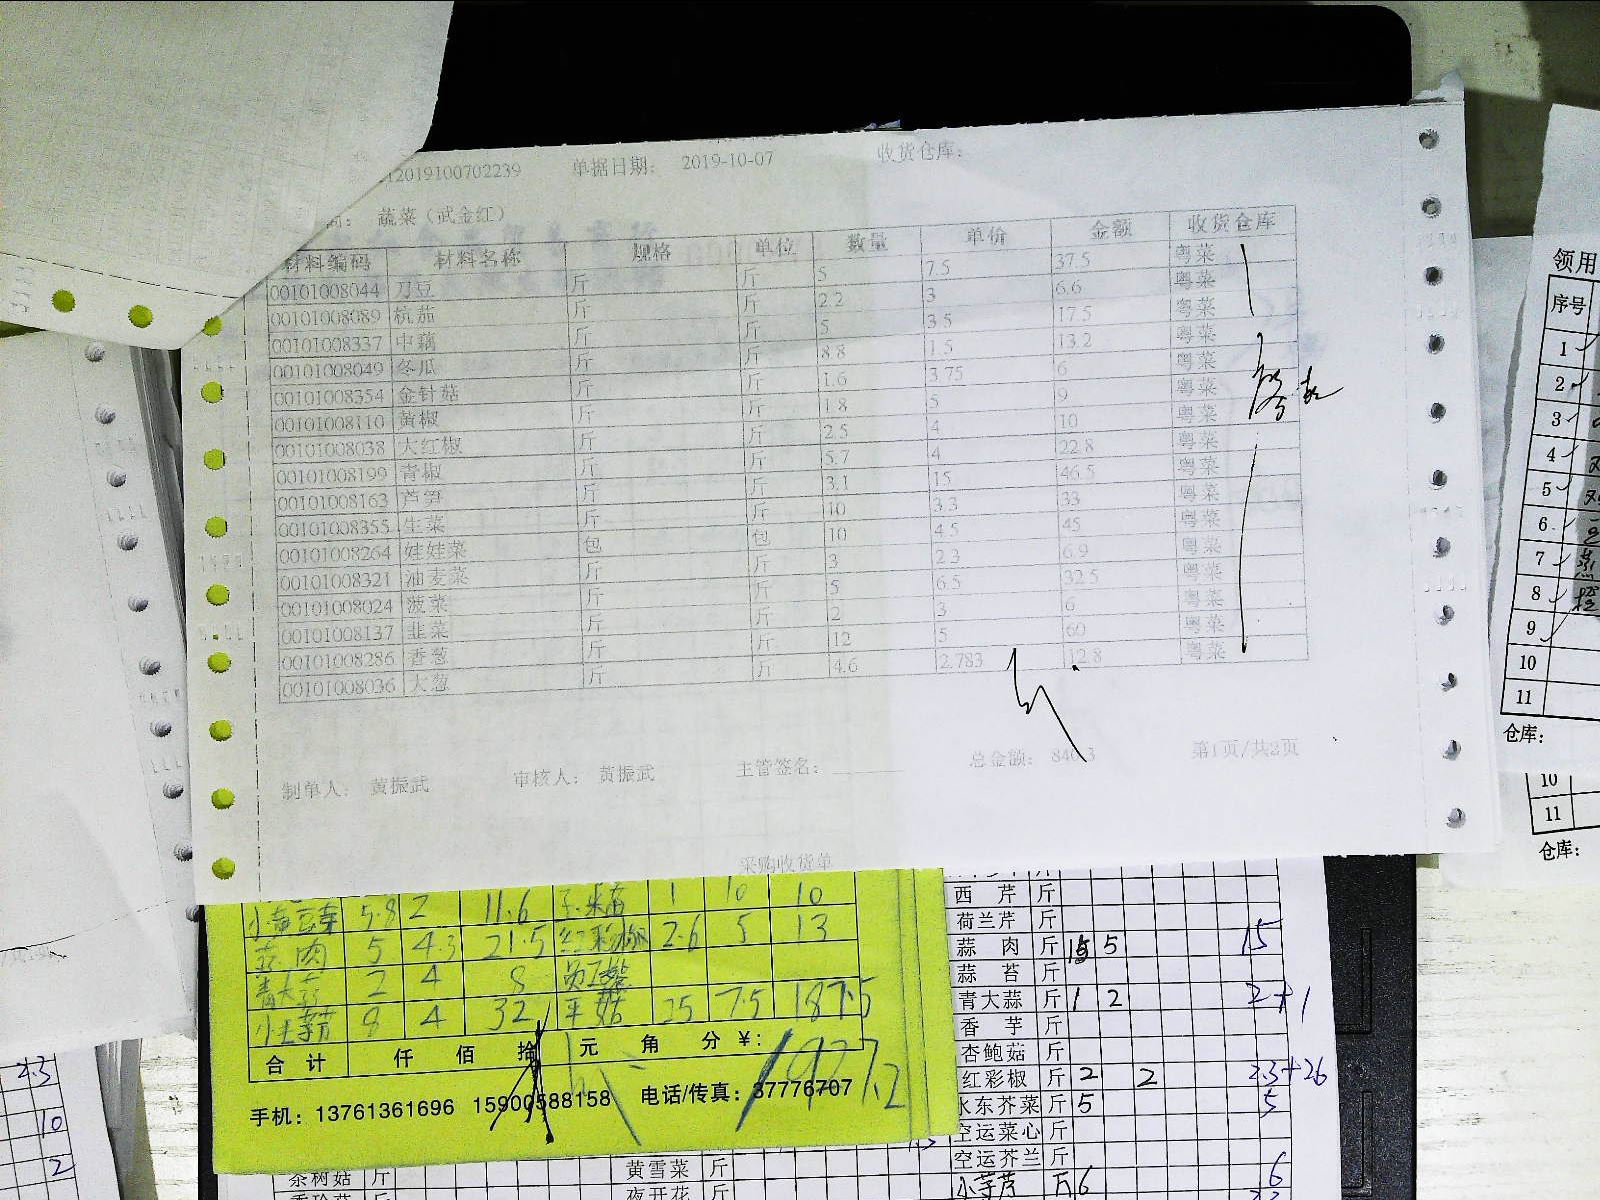 12019100702239 单据日期： 2019-10-07 收货仓库：
商： 蔬菜（武金红）
材料编码 材料名称 规格 单位 数量 单价 金额 收货仓库
00101008044 刀豆 斤 斤 5 7.5 37.5 粤菜
00101008089 杭茄 斤 斤 2.2 3 6.6 粤菜
00101008337 中藕 斤 斤 5 3.5 17.5 粤菜
00101008049 冬瓜 斤 斤 8.8 1.5 13.2 粤菜
00101008354 金针菇 斤 斤 1.6 3.75 6 粤菜
00101008110 黄椒 斤 斤 1.8 5 9 粤菜
00101008038 大红椒 斤 斤 2.5 4 10 粤菜
00101008199 青椒 斤 斤 5.7 4 22.8 粤菜
00101008163 芦笋 斤 斤 3.1 15 46.5 粤菜
00101008355 生菜 斤 斤 10 3.3 33 粤菜
00101008264 娃娃菜 包 包 10 4.5 45 粤菜
00101008321 油麦菜 斤 斤 3 2.3 6.9 粤菜
00101008024 菠菜 斤 斤 5 6.5 32.5 粤菜
00101008137 韭菜 斤 斤 2 3 6 粤菜
00101008286 香葱 斤 斤 12 5 60 粤菜
00101008036 大葱 斤 斤 4.6 2.783 12.8 粤菜
制单人： 黄振武 审核人： 黄振武 主管签名： 总金额： 840.3 第1页/共2页
采购收货单
小黄豆芽 5.8 2 11.6 玉米笛 1 10 10
蒜肉 5 4.3 21.5 红彩椒 2.6 5 13
青大蒜 2 4 8
8 4 32 平菇 25 7.5 187.5
合计 仟 佰 拾 元 角 分 ¥: 1927.2
手机：13761361696 15900588158 电话/传真：37776707
西芹 斤
荷兰芹 斤
蒜肉 斤 15 5 15
蒜苔 斤
青大蒜 斤 1 2 2+1
香芋 斤
杏鲍菇 斤
红彩椒 斤 2 2 2.3+26
水东芥菜 斤 5 5
空运菜心 斤
空运芥兰 斤 6
茶树菇 斤
黄雪菜 斤
夜开花 斤
领用
序号
1
2
3
4
5
6
7
8
9
10
11
仓库：
10
11
仓库：
2.3
10
2